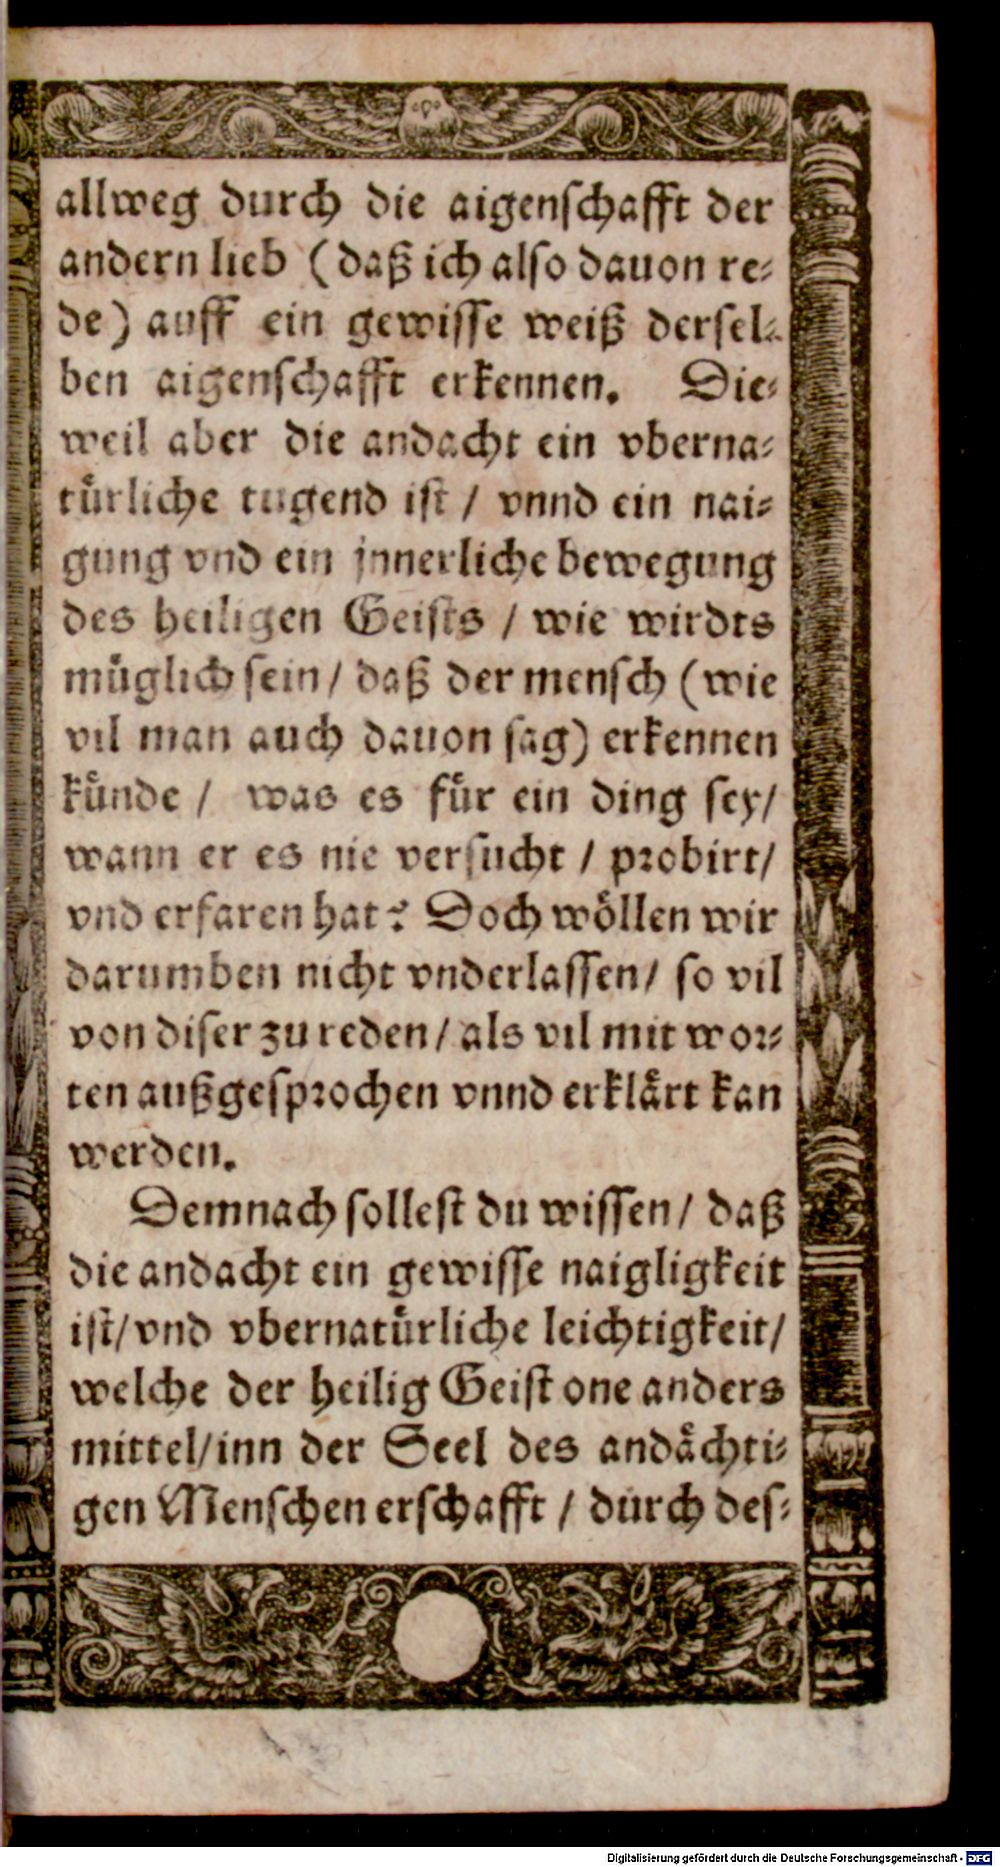 allweg durch die aigenschafft der
andern lieb (daß ich also dauon re-
de) auff ein gewisse weiß dersel-
ben aigenschafft erkennen. Die-
weil aber die andacht ein vberna-
tuͤrliche tugend ist / vnnd ein nai-
gung vnd ein jnnerliche bewegung
des heiligen Geists / wie wirdts
muͤglich sein / daß der mensch (wie
vil man auch dauon sag) erkennen
kuͤnde / was es fuͤr ein ding sey /
wann er es nie versucht / probirt /
vnd erfaren hat? Doch woͤllen wir
darumben nicht vnderlassen / so vil
von diser zu reden / als vil mit wor-
ten außgesprochen vnnd erklaͤrt kan
werden.
Demnach sollest du wissen / daß
die andacht ein gewisse naigligkeit
ist / vnd vbernatuͤrliche leichtigkeit /
welche der heilig Geist one anders
mittel / inn der Seel des andaͤchti-
gen Menschen erschafft / durch des-
Digitalisierung gefördert durch die Deutsche Forschungsgemeinschaft - DFG